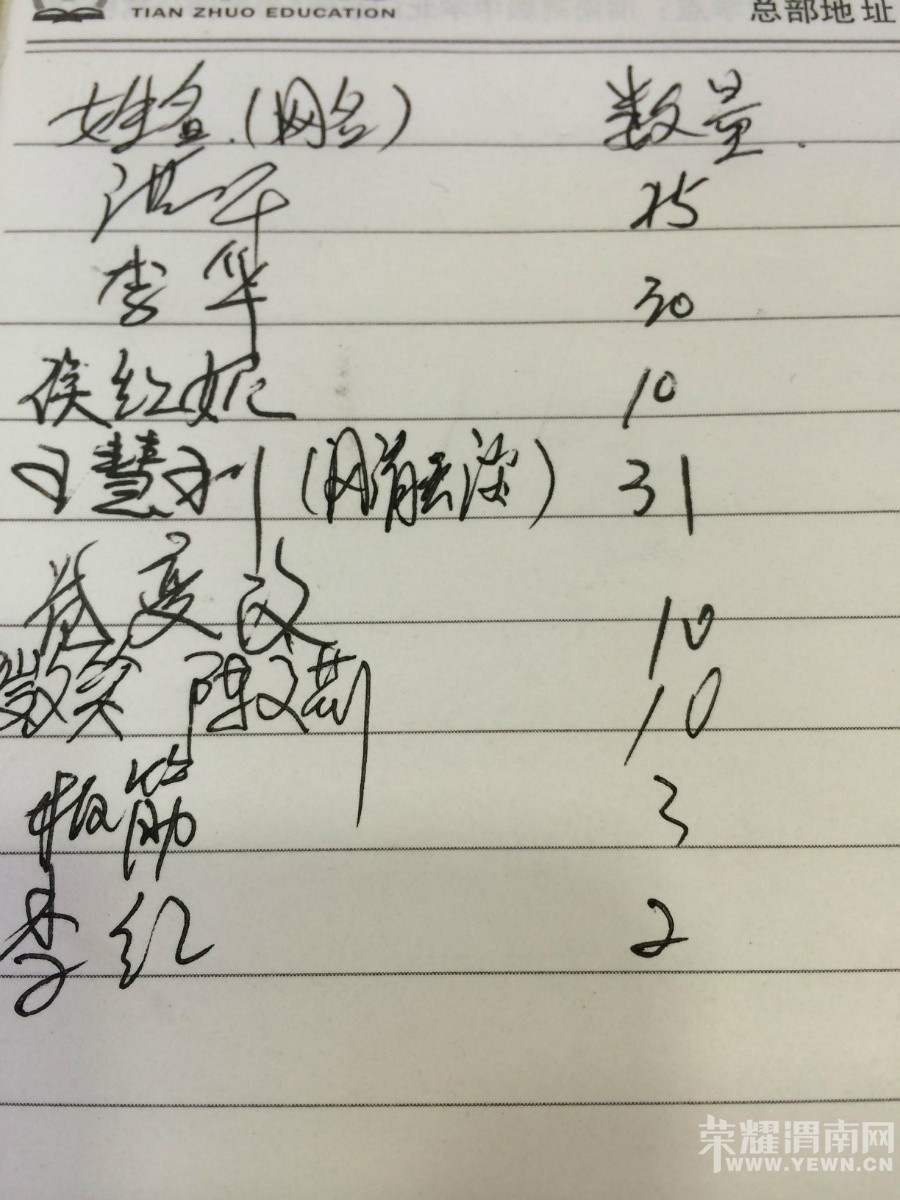 TIAN ZHUO EDUCATION 总部地址
姓名(网名) 数量
洪平 25
李华 30
侯红妮 10
王慧利(网 ) 31
变改 10
微笑 陈文莉 10
板筋 3
李红 2
荣耀渭南网
WWW.YEWN.CN